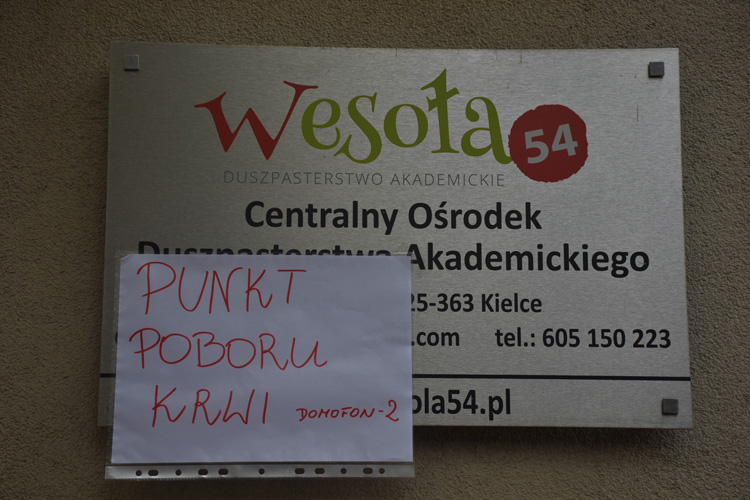 Wesoła 54
DUSZPASTERSTWO AKADEMICKIE
Centralny Ośrodek
Duszpasterstwa Akademickiego
25-363 Kielce
.com tel.: 605 150 223
ola54.pl
PUNKT
POBORU
KRWI DOMOFON-2